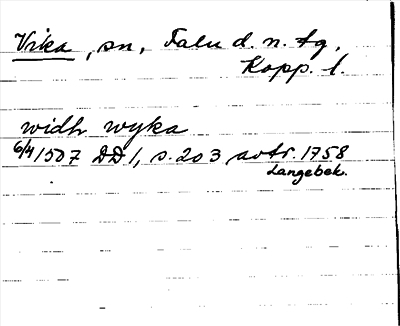 Vika, sn, Falu d. n. tg,
Kopp. l.
widh wyka
6/4 1507 DD 1, s. 203 avtr. 1758
Langebek.